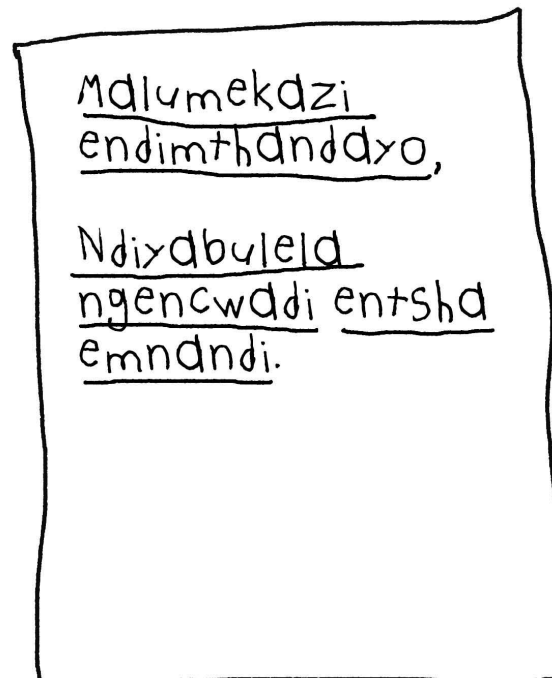 Malumekazi
endimthandayo,
Ndiyabulela
ngencwadi entsha
emnandi.